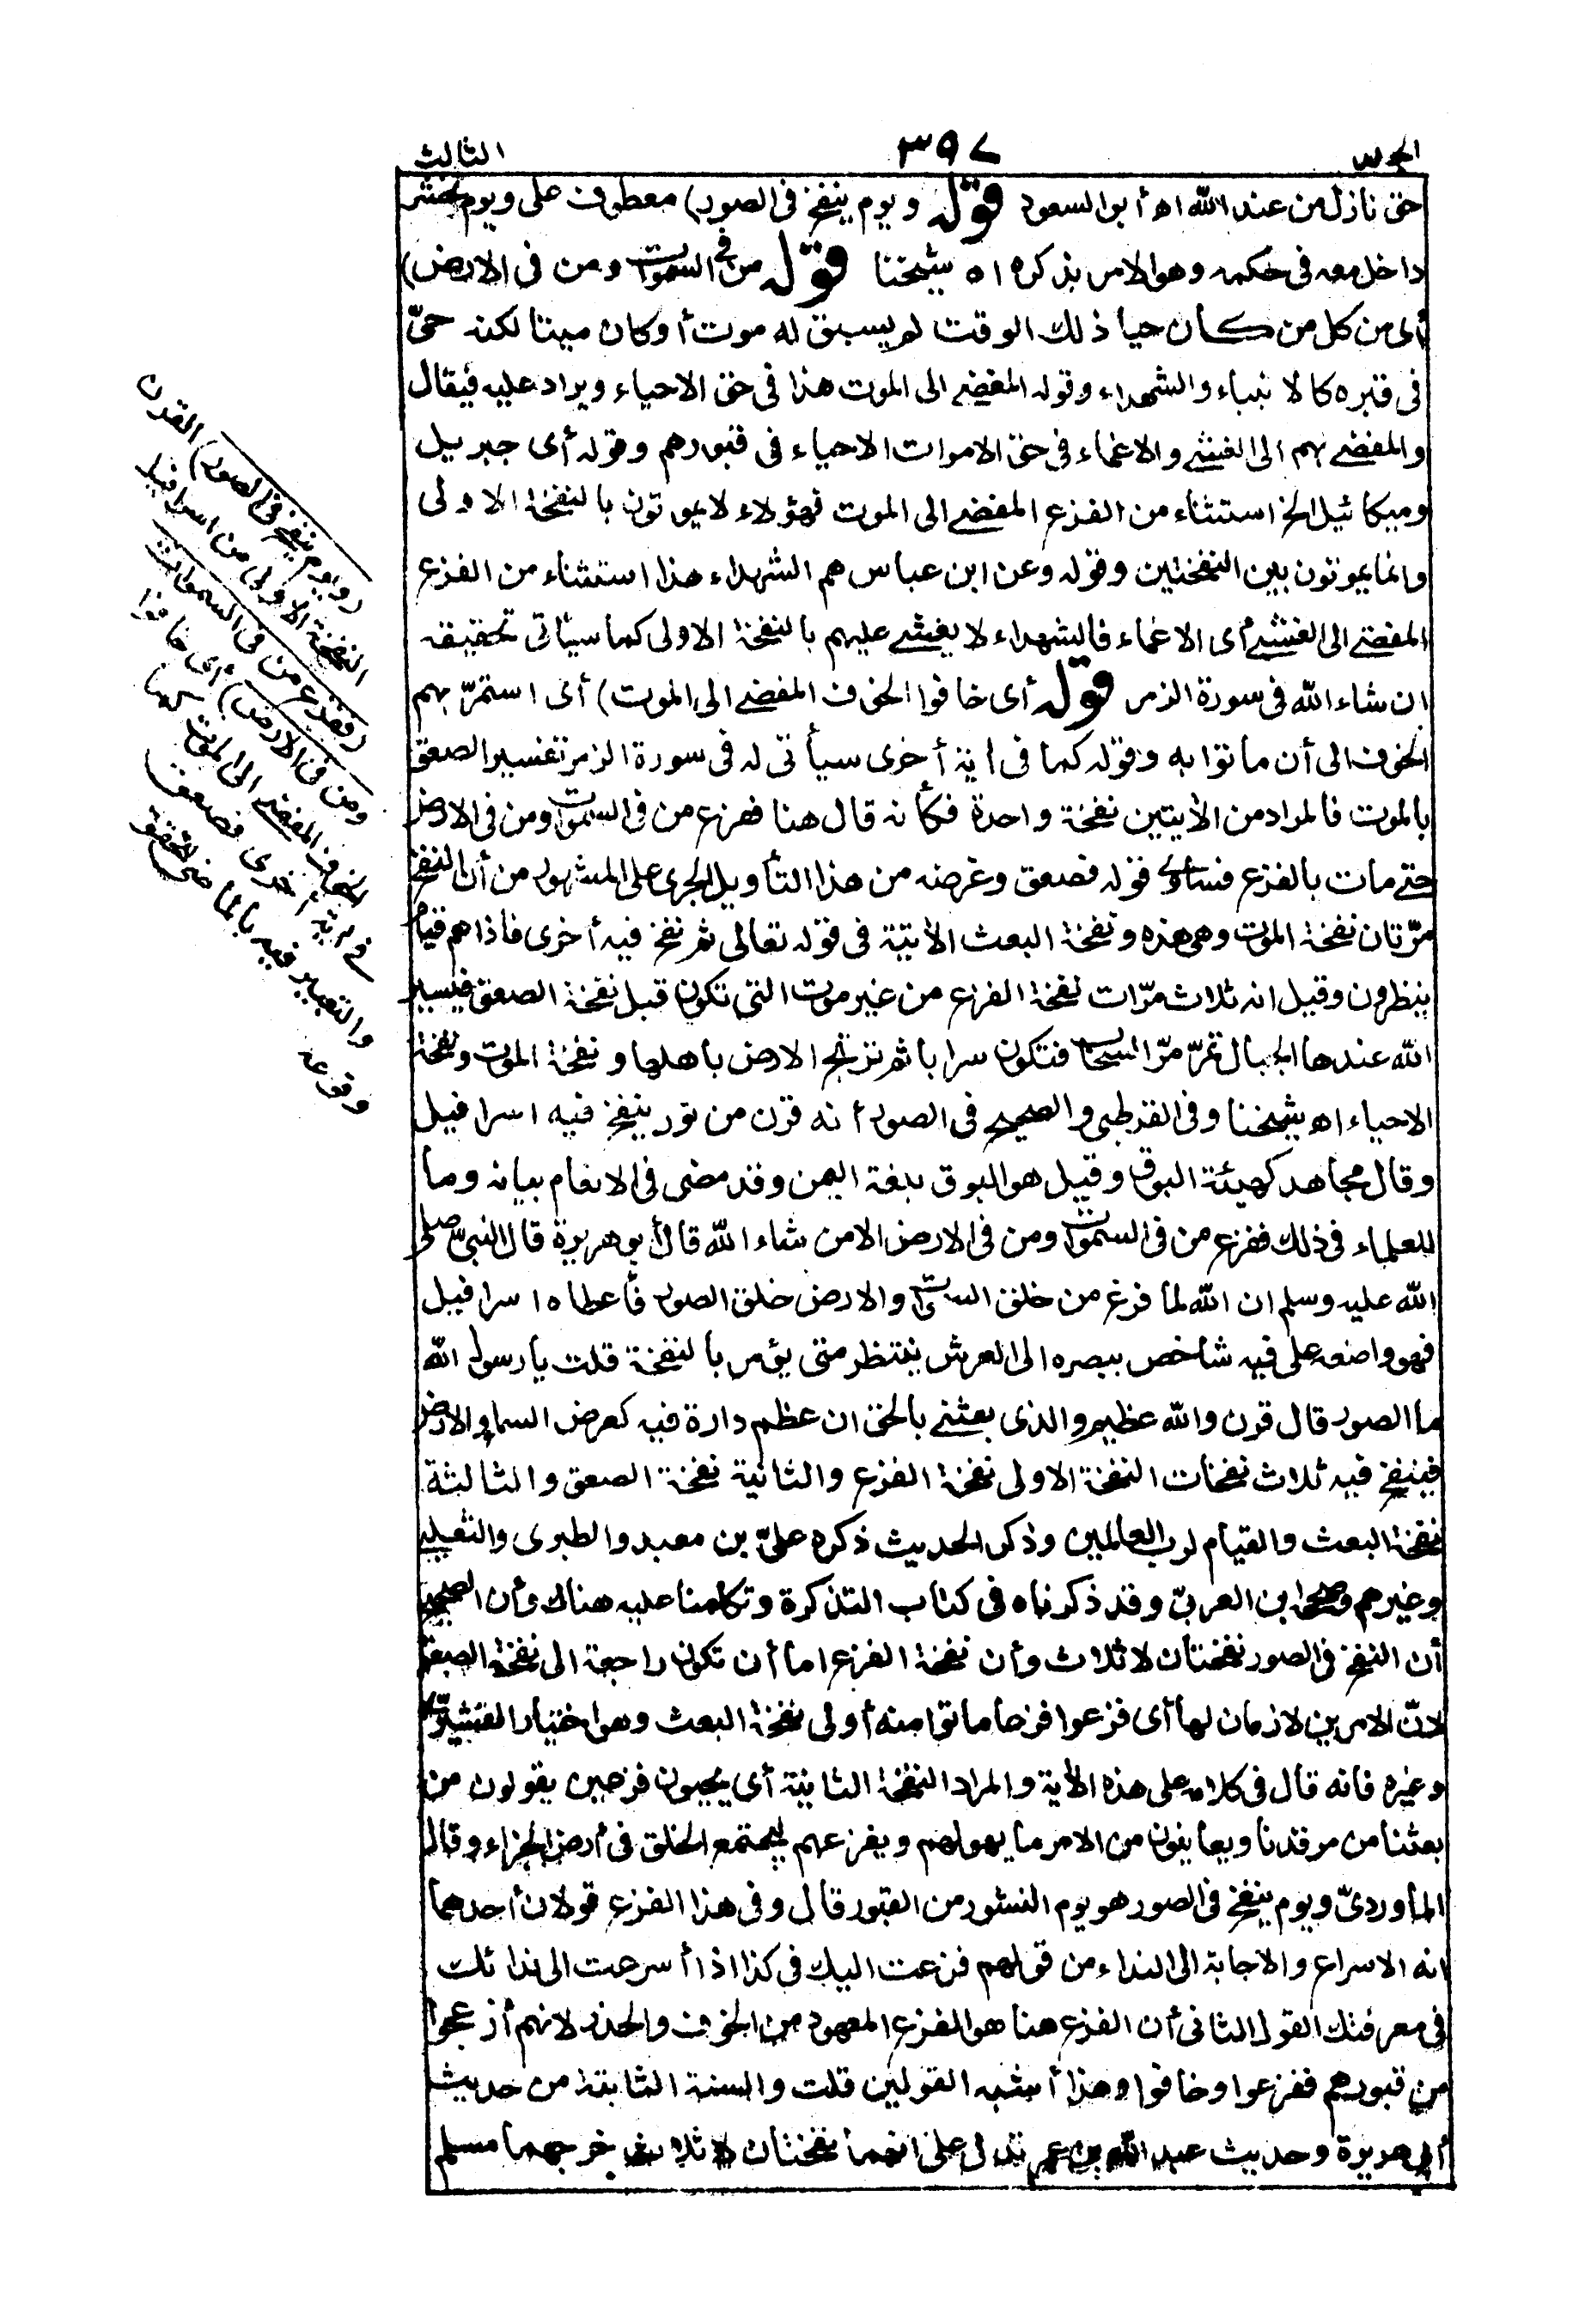 الجزء
٣٩٧
الثالث
حق نازل من عند الله اه أبو السعود قوله ويوم ينفخ فى الصور) معطوف على ويوم نحشر
داخل معه فى حكمه وهو الامر بذكره اه شيخنا قوله من فى السموات ومن فى الارض)
أى من كل من كان حيا ذلك الوقت لم يسبق له موت أو كان ميتا لكنه حىّ
فى قبره كالانبياء والشهداء وقوله المفضى الى الموت هذا فى حق الاحياء ويراد عليه فيقال
والمفضى بهم الى الغشى والاغماء فى حق الاموات الاحياء فى قبورهم وقوله أى جبريل
وميكائيل الخ استثناء من الفزع المفضى الى الموت فهؤلاء لا يموتون بالنفخة الاولى
وانما يموتون بين النفختين وقوله وعن ابن عباس هم الشهداء هذا استثناء من الفزع
المفضى الى الغشى أى الاغماء فالشهداء لا يغشى عليهم بالنفخة الاولى كما سيأتى تحقيقه
ان شاء الله فى سورة الزمر قوله أى خافوا الخوف المفضى الى الموت) أى استمرّ بهم
الخوف الى أن ماتوا به وقوله كما فى اية أخرى سيأتى له فى سورة الزمر تفسير الصعق
بالموت فالمراد من الأيتين نفخة واحدة فكأنه قال هنا ففزع من فى السموات ومن فى الارض
حتى مات بالفزع فساوى قوله فصعق وغرضه من هذا التأويل الجرى على المشهور من أن النفخ
مرّتان نفخة الموت وهى هذه ونفخة البعث الأتية فى قوله تعالى ثم نفخ فيه أخرى فاذاهم قيام
ينظرون وقيل انه ثلاث مرّات نفخة الفزع من غير موت التى تكون قبل نفخة الصعق فيسير
الله عندها الجبال تمرّ مرّ السحاب فتكون سرابا ثم ترتج الارض باهلها ونفخة الموت ونفخة
الاحياء اه شيخنا وفى القرطبى والصحيح فى الصور أنه قرن من نور ينفخ فيه اسرافيل
وقال مجاهد كهيئة البوق وقيل هو البوق بلغة اليمن وقد مضى فى الانعام بيانه وما
للعلماء فى ذلك ففزع من فى السموات ومن فى الارض الا من شاء الله قال أبو هريرة قال النبىّ صلى
الله عليه وسلم ان الله لما فرغ من خلق السموات والارض خلق الصور فأعطاه اسرافيل
فهو واضعه على فيه شاخص ببصره الى العرش ينتظر متى يؤمر بالنفخة قلت يا رسول الله
ما الصور قال قرن والله عظيم والذى بعثنى بالحق ان عظم دارة فيه كعرض السماء والارض
فينفخ فيه ثلاث نفخات النفخة الاولى نفخة الفزع والثانية نفخة الصعق والثالثة
نفخة البعث والقيام لرب العالمين وذكر الحديث ذكره علىّ بن معبد والطبرى والثعلبى
وغيرهم وصححه ابن العربىّ وقد ذكرناه فى كتاب التذكرة وتكلمنا عليه هناك وأن الصحيح
أن النفخ فى الصور نفختان لا ثلاث وأن نفخة الفزع اما أن تكون راجعة الى نفخة الصعق
لانّ الامرين لازمان لها أى فزعوا فزعا ماتوا منه أو الى نفخة البعث وهو اختيار القشيرىّ
وغيره فانه قال فى كلامه على هذه الأية والمراد النفخة الثانية أى يحيون فزعين يقولون من
بعثنا من مرقدنا ويعاينون من الامر ما يهولهم ويفزعهم ليجتمع الخلق فى أرض الجزاء وقال
الماوردىّ ويوم ينفخ فى الصور هو يوم النشور من القبور قال وفى هذا الفزع قولان أحدهما
انه الاسراع والاجابة الى النداء من قولهم فزعت اليك فى كذا اذا أسرعت الى ندائك
فى معرفتك القول الثانى أن الفزع هنا هو الفزع المعهود من الخوف والحذر لانهم أزعجوا
من قبورهم ففزعوا وخافوا وهذا أشبه القولين قلت والسنة الثابتة من حديث
أبى هريرة وحديث عبد الله بن عمر تدل على انهما نفختان لا ثلاث خرجهما مسلم
(ويوم ينفخ فى الصور) القرن
النفخة الاولى من اسرافيل
(ففزع من فى السموات
ومن فى الارض) أى خافوا
الخوف المفضى الى الموت كما
فى اية أخرى فصعق
والتعبير فيه بالماضى لتحقق
وقوعه